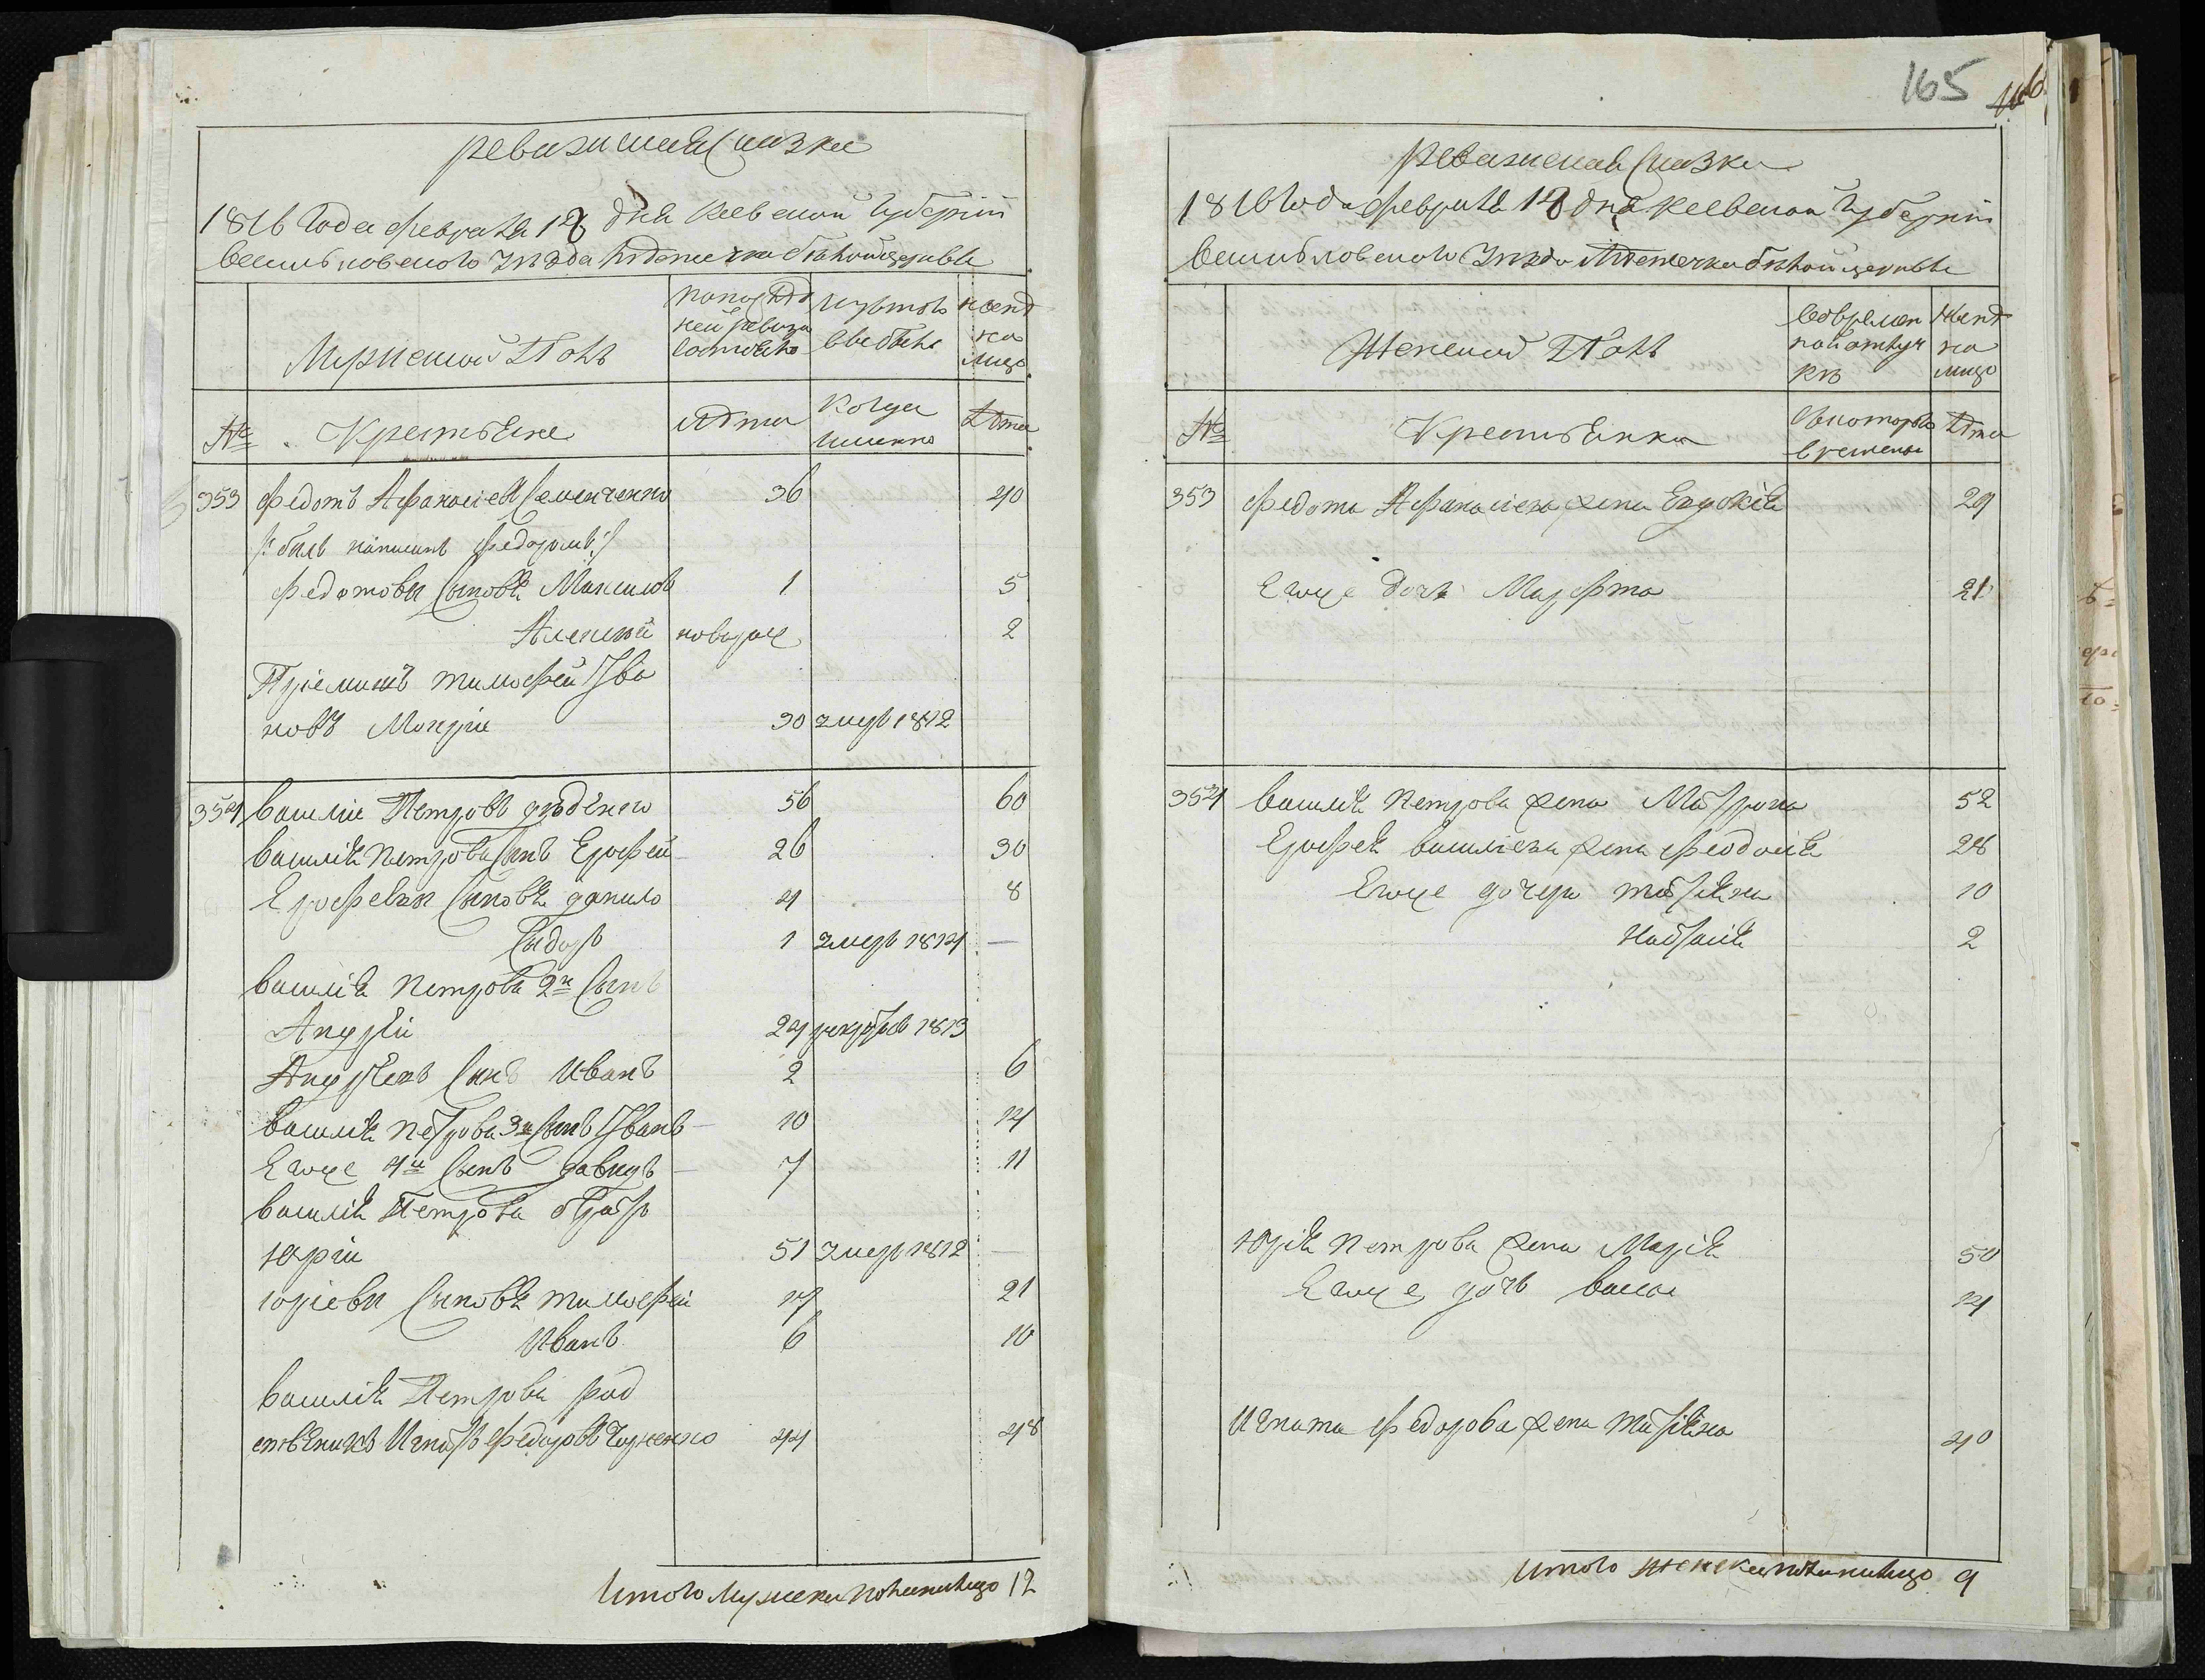 ревизская сказка
1816 года февраля 18 дня Киевской губерніи
васильковскаго уезда местечка белойцеркви
Мужеской Полъ
По последней ревизіи состояло
Изътого выбыло
Ныне на лицо
№
Крестьяне
лета
Когда именно
Лета
353 Федотъ Афанасіевъ Семенченко 36 40
/: былъ написанъ Федоромъ :/
Федотовы сыновья Максимъ 1 5
Алексей новорож 2
Пріемышъ тимофей Ива
новъ 30 умеръ 1812
354 василій Петровъ 56 60
василія Петрова сынъ Ерофей 26 30
Ерофеевы сыновья данило 4 8
Сидоръ 1 умеръ 1814 —
василія Петрова 2й сынъ
Андрей 24 1813
Андреевъ сынъ Иванъ 2 6
василія Петрова 3й сынъ Иванъ 10 14
Егоже 4й сынъ давидъ 7 11
василія Петрова братъ
Юрій 51 умеръ 1812 —
юріевы сыновья тимофей 17 21
Иванъ 6 10
василія Петрова род
ственикъ Игнатъ Федоровъ 44 48
Итого мужеска пола налицо 12
165
ревизская сказка
1816 года февраля 18 дня Киевской губерніи
васильковскаго уезда местечка белой церкви
Женской Полъ
Вовременной отлучке
Ныне на лицо
№
Крестьянки
Съкоторого времени
Лета
353 Федота Афанасіева жена Евдокія 29
Егоже дочь Марфа 21
354 василія Петрова жена Матрона 52
Ерофея василіева жена Феодосія 28
Егоже дочери татіяна 10
наталія 2
Юрія Петрова жена Марія 50
Егоже дочь васса 14
Игната Федорова жена татіяна 40
Итого женска пола налицо 9